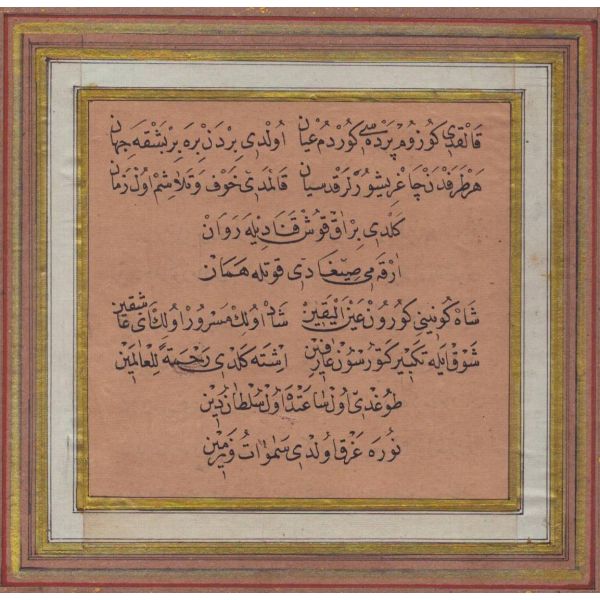 قالقدی كوزوم پرده سی كوردم عیان اولدی بردن بره بر بشقه جهان
هر طرفدن چاغریشورلر قدسیان قالمدی خوف و تلاشم اول زمان
كلدی بر آق قوش قنادیله روان
ارقه می صیغادی قوتله همان
شاه كونینی كورون عین الیقین شاد اولك مسرور اولك ای عاشقین
شوقایله تكبیر كتورسون عارفین اشته كلدی رحمة للعالمین
طوغدی اول ساعتده اول سلطان دین
نوره غرق اولدی سموات و زمین